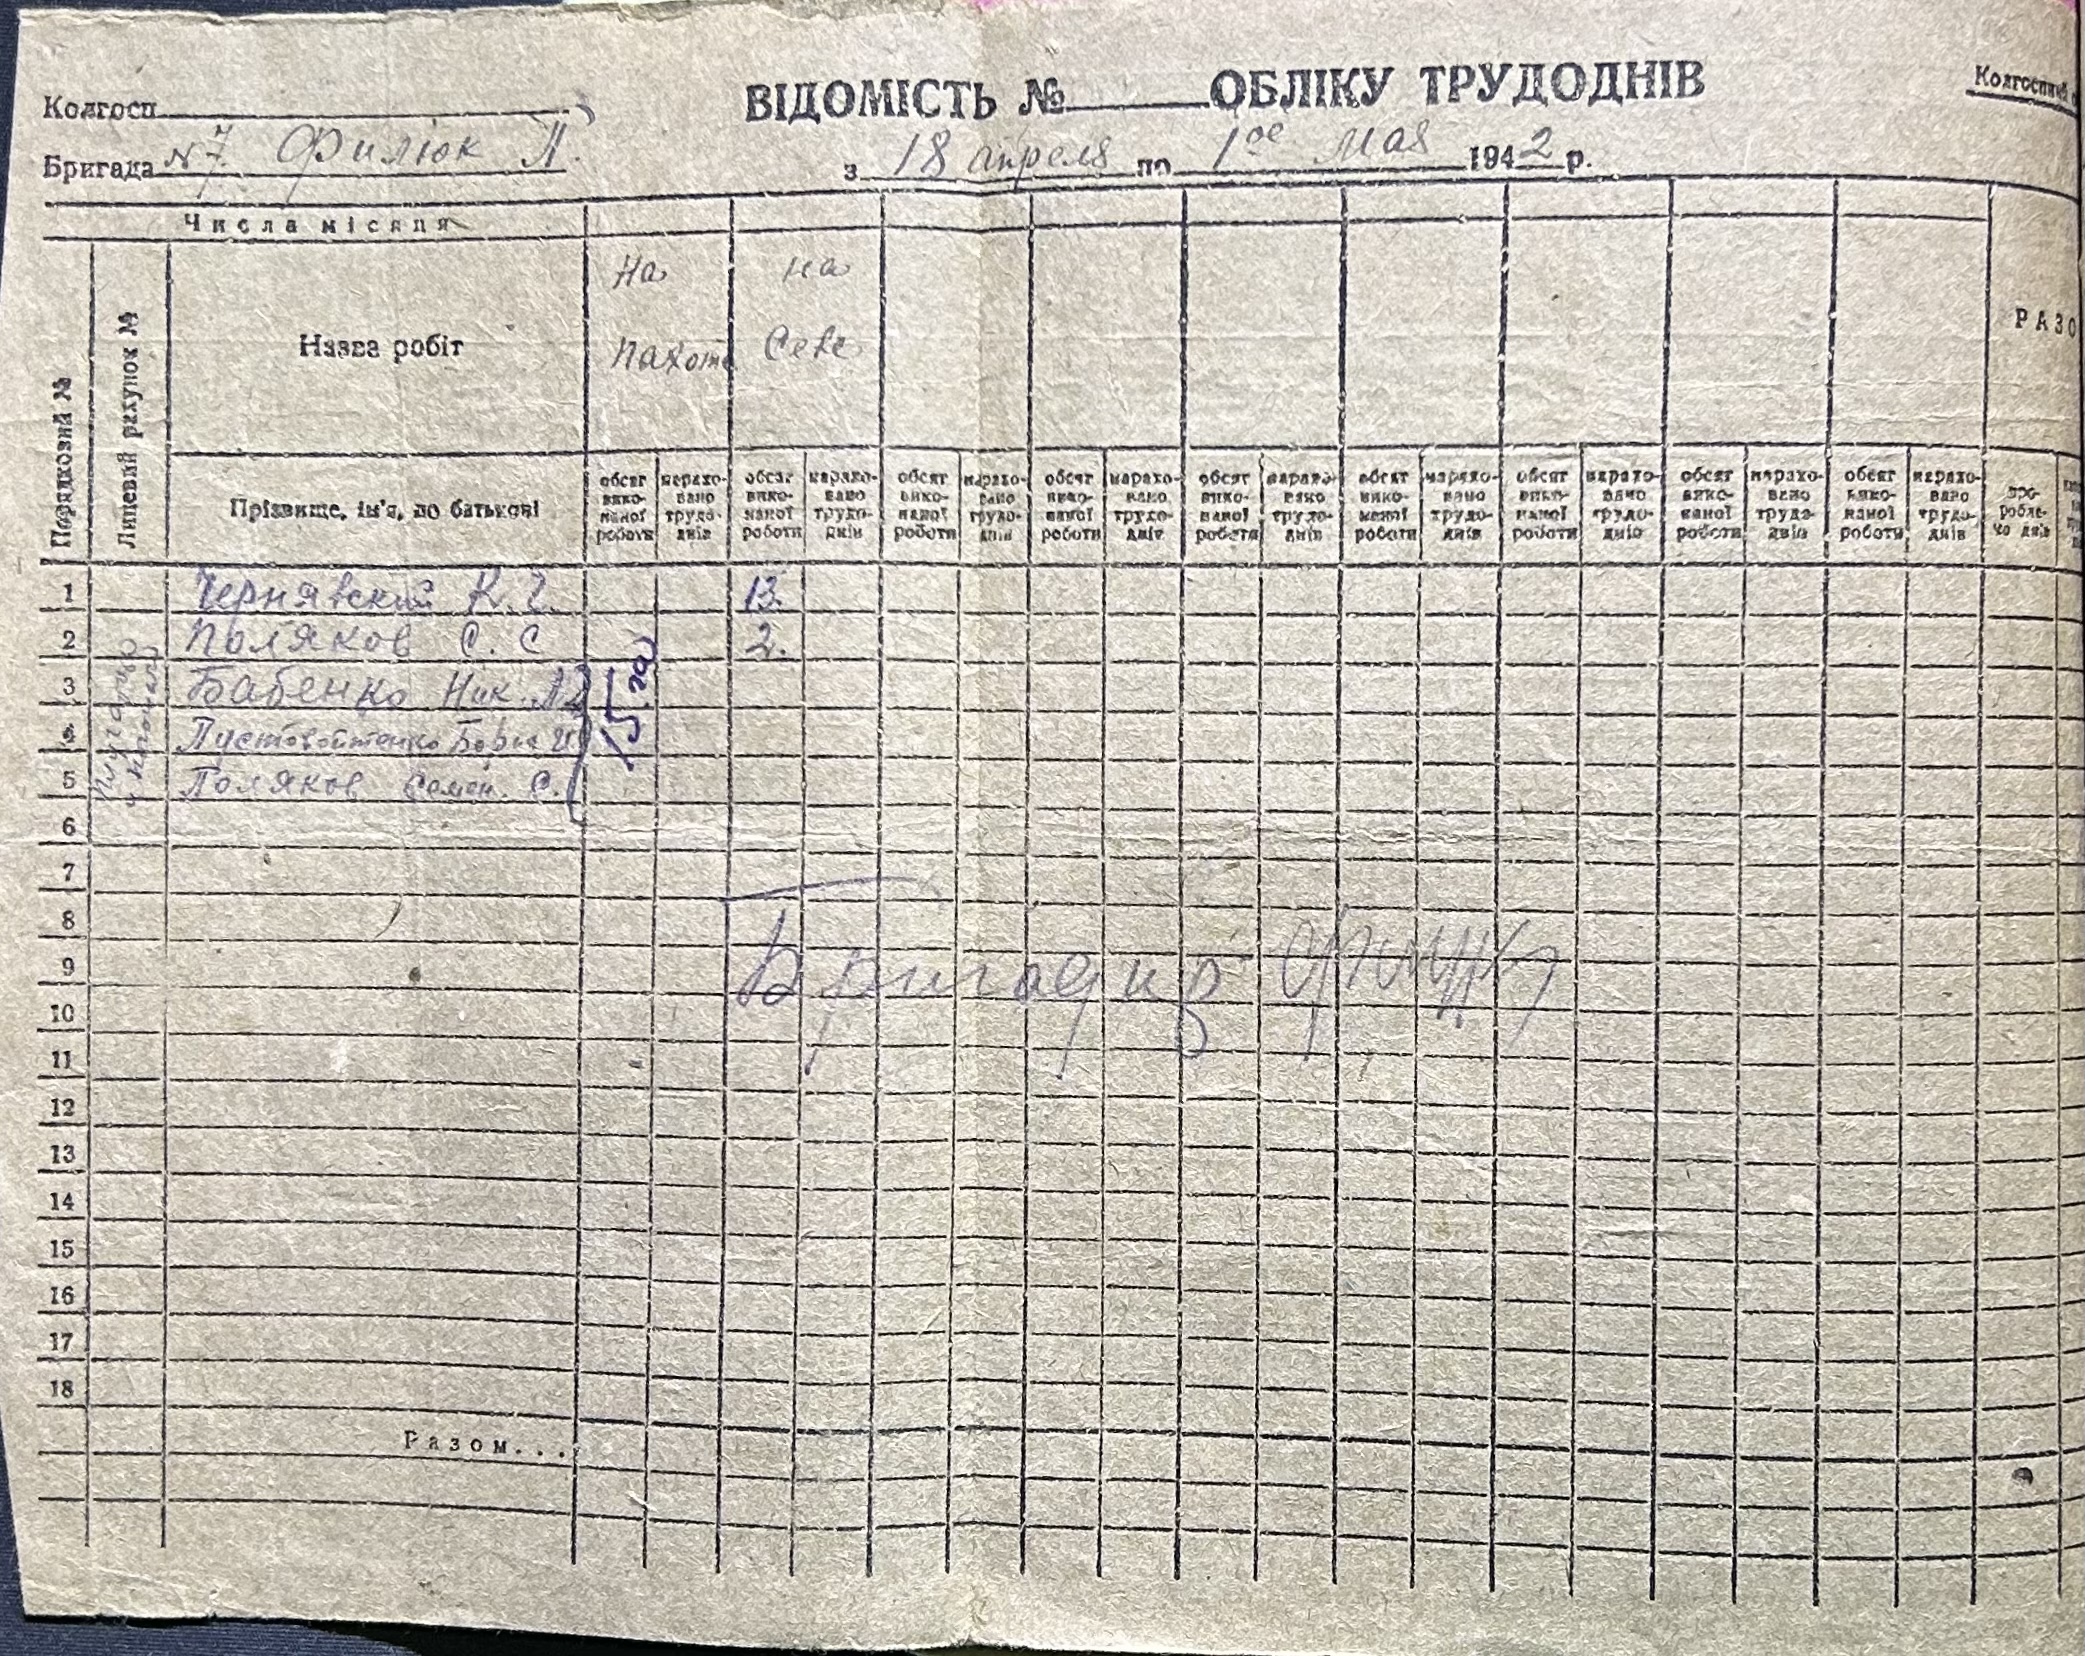 Колгосп
ВІДОМІСТЬ № ОБЛІКУ ТРУДОДНІВ
Колгоспний
Бригада №7 Филюк П.
з 18 апреля по 1ое Мая 1942 р.
Числа місяця
Порядковий №
Лицевий рахунок №
Назва робіт
На пахоте
на Севе
РАЗО
Прізвище, ім'я, по батькові
обсяг виконаної роботи
нараховано трудоднів
обсяг виконаної роботи
нараховано трудоднів
обсяг виконаної роботи
нараховано трудоднів
обсяг виконаної роботи
нараховано трудоднів
обсяг виконаної роботи
нараховано трудоднів
обсяг виконаної роботи
нараховано трудоднів
обсяг виконаної роботи
нараховано трудоднів
обсяг виконаної роботи
нараховано трудоднів
обсяг виконаної роботи
нараховано трудоднів
проробле-но днів
1 Чернявский К. Г. 13.
2 Поляков С. С 2.
3 Бабенко Ник.
4 Пустовойтенко
5 Поляков Семен. С.
15 га
6
7
8
9
Бригадир
10
11
12
13
14
15
16
17
18
Разом...